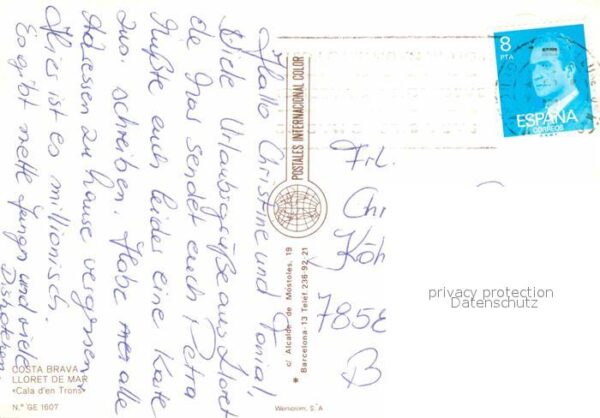 Hallo Christine und Tonia!,
Viele Urlaubsgrüße aus Lloret
de Mar sendet euch Petra
Mußte euch leider eine Karte
zus. schreiben. Habe alle
Adressen zu hause vergessen.
Hier ist es millionisch.
Es gibt nette Jungn und viele
Diskoteken.
COSTA BRAVA
LLORET DE MAR
«Cala d'en Trons»
N.º GE 1607
POSTALES INTERNACIONAL COLOR
c/ Alcalde de Móstoles, 19
* Barcelona-13 Telef. 236 92 21
Warncrom, S/A
8
PTA
ESPAÑA
CORREOS
Frl.
Chr
Köh
7858
privacy protection
Datenschutz